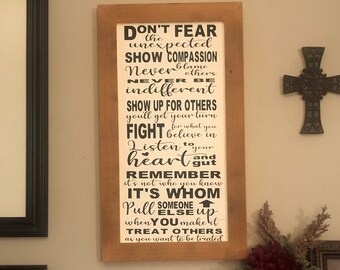 DON'T FEAR
the
unexpected
SHOW COMPASSION
Never blame
others
NEVER BE
indifferent
SHOW UP FOR OTHERS
you'll get your turn
FIGHT for what you
believe in
Listen to
your
heart and
gut
REMEMBER
it's not who you know
IT'S WHOM
Pull SOMEONE
ELSE up
when YOU make it
TREAT OTHERS
as you want to be treated